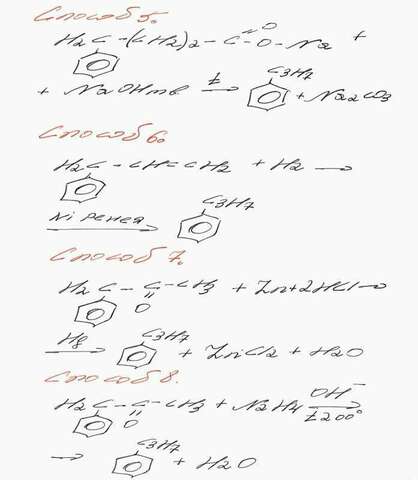 Способ 5.
H2C-(CH2)2-C-O-Na +
O
+ NaOHтв t→ C3H7 + Na2CO3
Способ 6.
H2C-CH=CH2 + H2 →
Ni Ренея → C3H7
Способ 7.
H2C-C-CH3 + Zn+2HCl→
O
Hg → C3H7 + ZnCl2 + H2O
Способ 8.
H2C-C-CH3 + N2H4 OH- t200° →
O
→ C3H7 + H2O